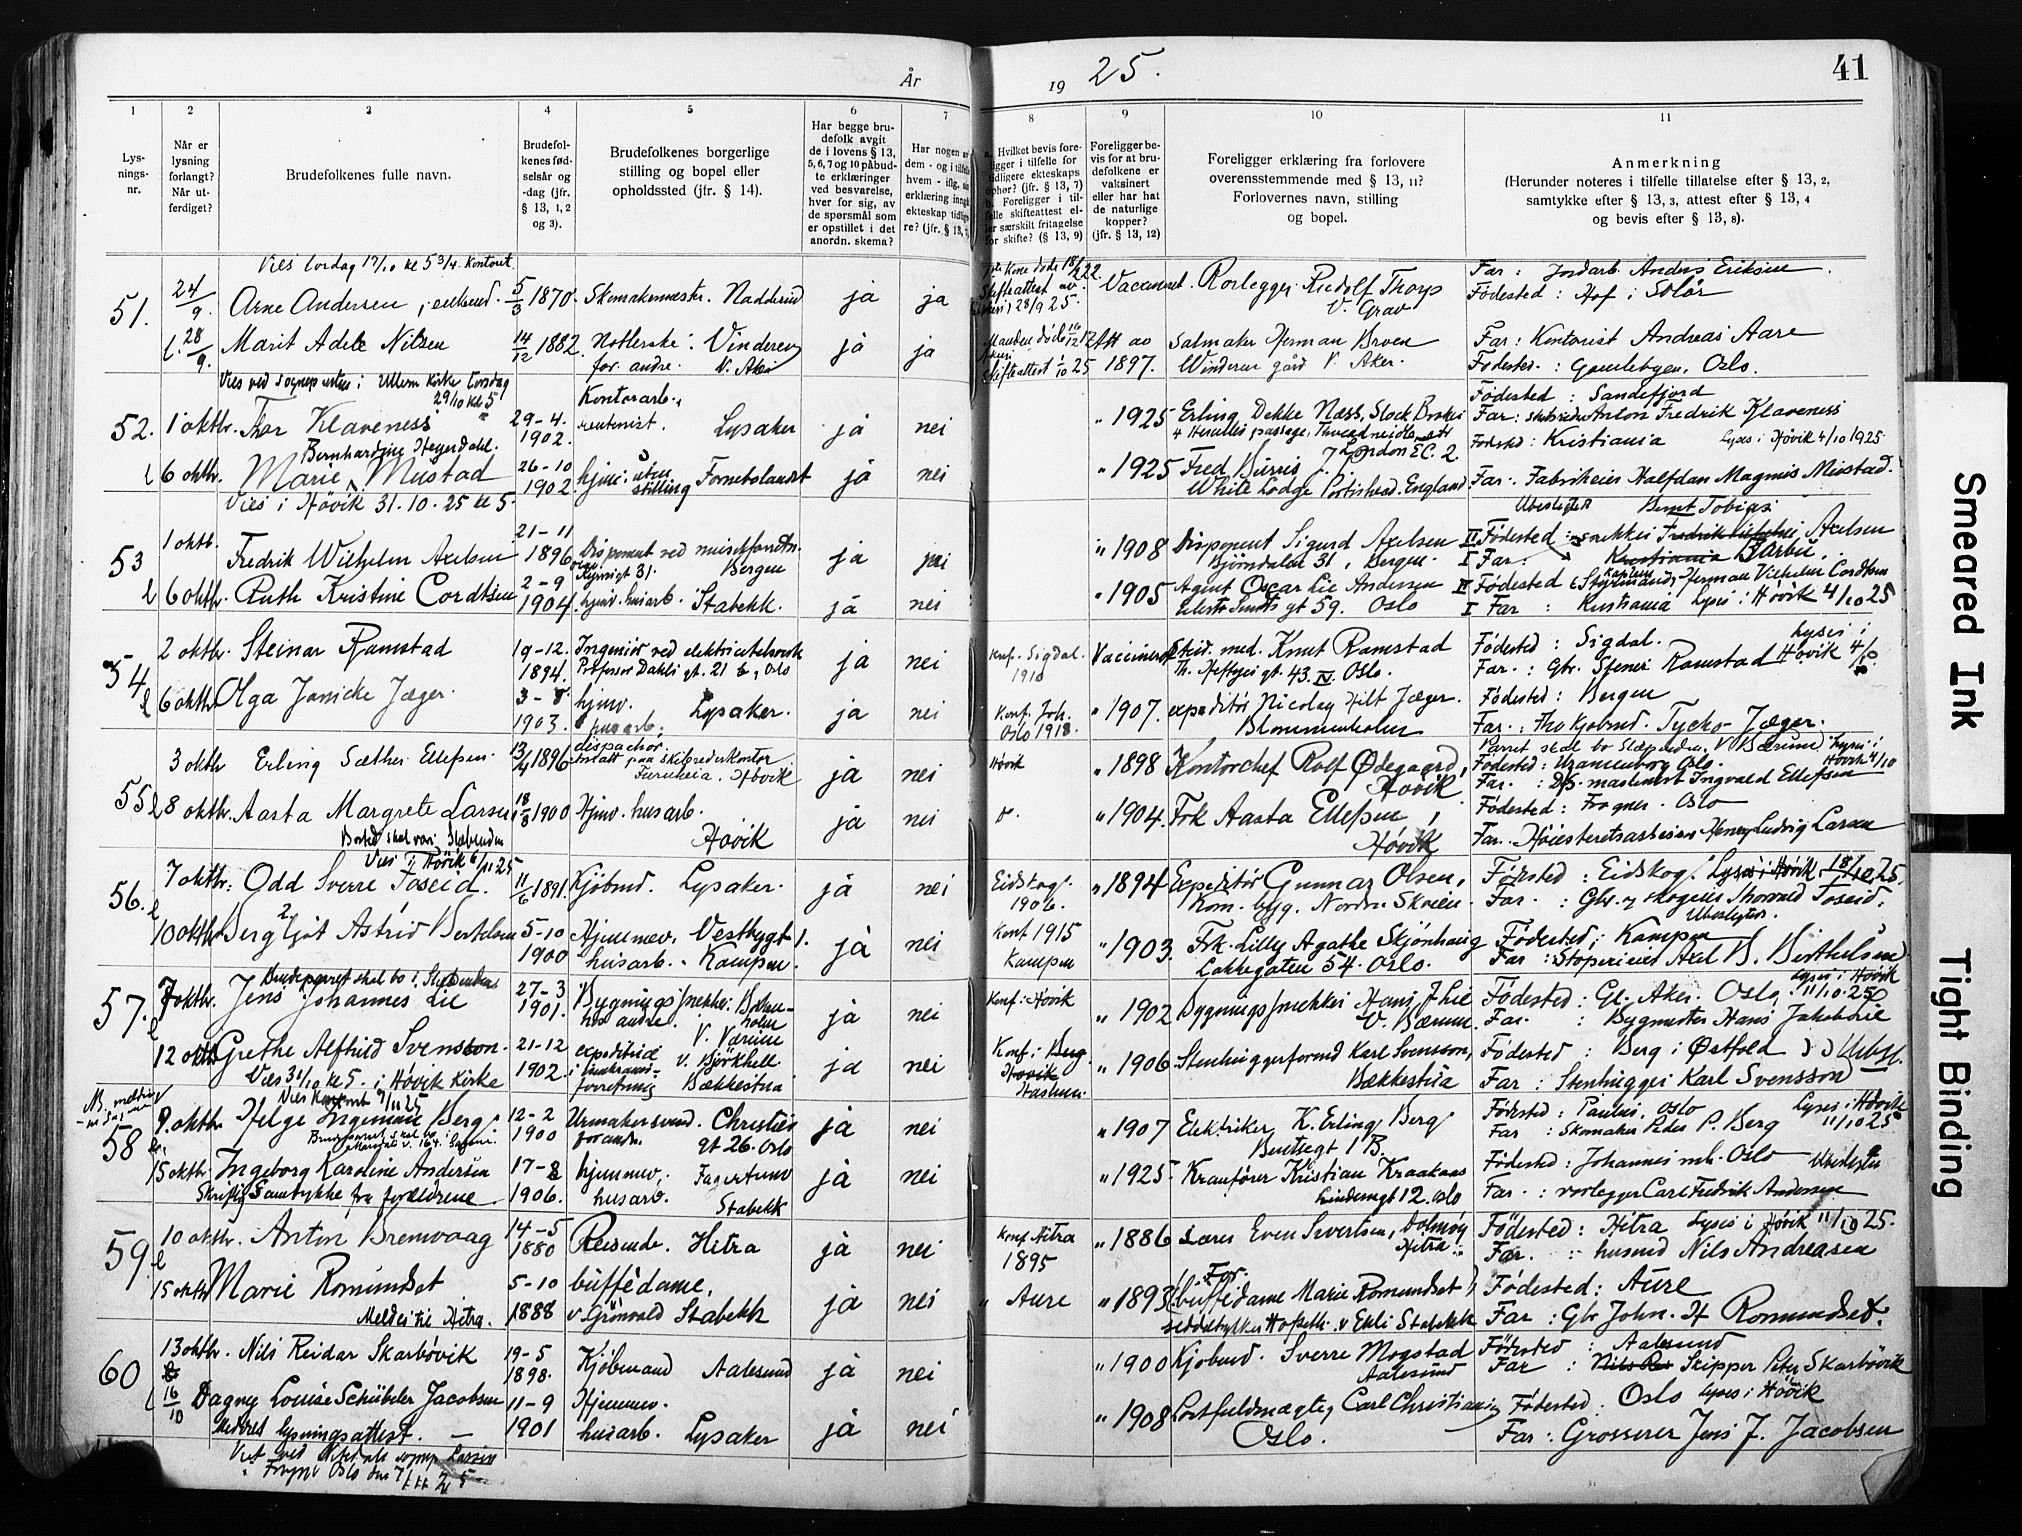 År
19 25.
41
1
2
3
4
5
6
7
8
9
10
11
Lys-
nings-
nr.
Når er
lysning
forlangt?
Når ut-
ferdiget?
Brudefolkenes fulle navn.
Brudefol-
kenes fød-
selsår og
-dag (jfr.
§ 13, 1, 2
og 3).
Brudefolkenes borgerlige
stilling og bopel eller
opholdssted (jfr. § 14).
Har begge bru-
defolk avgit
de i lovens § 13,
5, 6, 7 og 10 påbud-
te erklæringer
ved besvarelse,
hver for sig, av
de spørsmål som
er opstillet i det
anordn. skema?
Har nogen
dem - og i tilfelle
hvem - iflg.
erklæring inngått
ekteskap tidlige-
re? (jfr. § 13,
Hvilket bevis fore-
ligger i tilfelle for
tidligere ekteskaps
ophør? (jfr. § 13, 7)
b. Foreligger i til-
felle skifteattest el-
ler særskilt fritagelse
for skifte? (§ 13, 9)
Foreligger be-
vis for at bru-
defolkene er
vaksinert
eller har hat
de naturlige
kopper?
(jfr. § 13, 12)
Foreligger erklæring fra forlovere
overensstemmende med § 13, 11?
Forlovernes navn, stilling
og bopel.
Anmerkning
(Herunder noteres i tilfelle tillatelse efter § 13, 2,
samtykke efter § 13, 3, attest efter § 13, 4
og bevis efter § 13, 8).
Vies lørdag 17/10 kl 5 3/4 kontoret
51. 24/9. Arne Andersen, enkemd. 5/3 1870. Skomakermester. Nadderud ja ja
Skifteattest av 28/9 25. Vaccineret Rørlegger Rudolf Thorp V. Grav
Far: Jordarb. Anders Eriksen.
Fødested: Hof i Solør
28/9. Marit Adele Nilsen 14/12 1882. for andre. Vinderen V. Aker ja ja
Skifteattest 1/10 25 1897. Salmaker Herman Broen Winderen gård V. Aker.
Far: Kontorist Andreas Aare
Fødested: Gamlebyen, Oslo.
Vies ved sogneprsten i Ullern Kirke Torsdag 29/10 kl 5
52. 1 oktbr. Thor Klaveness 29-4. 1902. Kontorarb. Lysaker ja nei
" 1925 Erling Dekke Næss, Stock Broker
4 Hercules passage, Threadneedle str London EC. 2
Fødested: Sandefjord
Far: skibsreder Anton Fredrik Klaveness
Bernhardine Heyerdahl
6 oktbr. Marie Mustad 26-10 1902. hjem. uten stilling Fornebolandet ja nei
" 1925 Fred Burris
White Lodge Portishead. England
Fødested: Kristiania Lyses i Høvik 4/10 1925
Far: Fabrikeier Halfdan Magnus Mustad.
Vies i Høvik 31.10.25 kl 5.
Ubeslegtet
Bernt Tobias
53 1 oktb. Fredrik Wilhelm Axelsen 21-11 1896 Disponent ved Bergen ja nei
" 1908 Disponent Sigurd Axelsen
Bjørndalen 31, Bergen.
II Fødested: snekker Axelsen
I Far: Kristiania Barbu.
6 oktbr. Ruth Kristine Cordtsen 2-9 1904. hjemv. husarb. Stabekk. ja nei
" 1905 Agent Oscar Lie Andersen
gt 59. Oslo
II Fødested Kaptein Styrmand Herman Vilhelm Cordtsen
I Far: Kristiania Lyses i Høvik 4/10 25
54 2 oktbr. Steinar Ramstad 19-12. 1894. Ingeniør ved elektricitetsverk
Professor Dahls gt. 21 b, Oslo ja nei
Konf. Sigdal. 1910 Vaccineret Stud. med. Knut Ramstad
Th. Heftyes gt. 43. IV Oslo.
Fødested: Sigdal.
Far: Gbr. Stener Ramstad Lyses i Høvik 4/10
6 oktbr Olga Janicke Jæger. 3-8 1903. hjemv. husarb. Lysaker. ja nei
Konf. Joh. Oslo 1918 " 1907. expeditør Nicolay Hilt Jæger.
Blommenholm
Fødested: Bergen
Far: Tycho Jæger.
Parret skal bo Slependen, V. Bærum Lyses i Høvik 4/10
55 3 oktbr Erling Sæther Ellefsen. 13/4 1896 dispachør
ansatt paa skibsrederkontor
Furuheia. Høvik ja nei
Høvik " 1898 Kontorchef Rolf Ødegaard, Høvik
Fødested: Uranienborg Oslo.
Far: D/S. maskinist Ingvald Ellefsen
8 oktbr. Aasta Margrete Larsen 18/3 1900 Hjemv. husarb. Høvik ja nei
" 1904. Frk Aasta Ellefsen, Høvik
Fødested: Frogner. Oslo
Far: Høiesteretsadvokat Henry Ludvig Larsen
Bosted skal være Slependen
Vies i Høvik 6/11 25
56. 7 oktbr. Odd Sverre Foseid. 11/6 1891. Kjøbmd. Lysaker. ja nei
Eidskog. 1906. " 1894 Expeditør Gunnar Olsen,
Kom. byg. Nordre Skøien.
Fødested: Eidskog. Lyses i Høvik 18/10 25.
Far: Gbr. og skogeier Thorvald Foseid. Ubeslegtet.
10 oktbr Bergljot Astrid Bertelsen 5-10 1900 Hjemmev. husarb. Vestbygt 1. Kampen. ja nei
Konf 1915 Kampen " 1903. Frk. Lilly Agathe Skjønhaug
Lakkegaten 54. Oslo.
Fødested: Kampen
Far: Axel B. Berthelsen
Brudeparret skal bo i Slependen
57. 7 oktbr. Jens Johannes Lie 27-3 1901. Bygningssnekker hos andre. V. Bærum ja nei
Konf: Høvik " 1902 Bygningssnekker Hans J. Lie V. Bærum
Fødested: Gl. Aker. Oslo Lyses i Høvik 11/10.25
Far: Bygmester Hans Jakob Lie
12 oktb Grethe Alfhild Svensson. 21-12 1902. expeditrice forretning V. Bjørkhell. Bækkestua ja nei
Konf i Berg " 1906 Stenhuggerformd Karl Svensson, Bækkestua
Fødested: Berg i Østfold Ubesl.
Far: Stenhugger Karl Svensson
Vies 31/10 kl 5. i Høvik Kirke
58 9. oktbr Helge Ingeman Berg 12-2 1900 Urmakersvend. for andre. Christies gt 26. Oslo ja nei
" 1907 Elektriker K. Erling Berg
Bentsegt 1 B.
Fødested: Paulus. Oslo Lyses i Høvik 11/10 25
Far: Skomaker Peder P. Berg
15 oktbr Ingeborg Karoline Andersen 17-8 1906. hjemmev. husarb. Fagerstrand Stabekk ja nei
" 1925. Kranfører Kristian Kraakaas
Lindemsgt 12. Oslo
Fødested: Johannes mh. Oslo Ubeslegtet
Far: rørlegger Carl Fredrik Andersen
Skriftlig Samtykke fra forældrene
59 10 oktbr. Anton Bremvaag 14-5 1880 Reisende. Hitra ja nei
Konf Hitra 1895 " 1886 Lærer Even Sivertsen, Dolmøy Hitra
Fødested: Hitra Lyses i Høvik 11/10 25.
Far: husmd Nils Andreasen
15 oktb Marie Romundset 5-10 1888 buffédame, v. Grønvold Stabekk ja nei
" Aure " 1893 For: buffédame Marie Romundset
v Ekli Stabekk
Fødested: Aure
Far: Gbr John. H Romundset.
Meldes til Hitra.
60 13 oktbr. Nils Reidar Skarbøvik 19-5 1898. Kjøbmand Aalesund ja nei
" 1900 Kjøbmd. Sverre Mogstad Aalesund
Fødested: Aalesund
Far: Skipper Peter Skarbøvik
16/10 Dagny Louise Schübeler Jacobsen 11-9 1901 Hjemmev. husarb. Lysaker ja nei
" 1908 Postfuldmægtig Carl Christian
Oslo.
Fødested: Oslo Lyses i Høvik
Far: Grosserer Jens J. Jacobsen
lysningsattest.
Viet ved sogneprest Larsen
Frogner Oslo den 7/11 25
Smeared Ink
Tight Binding